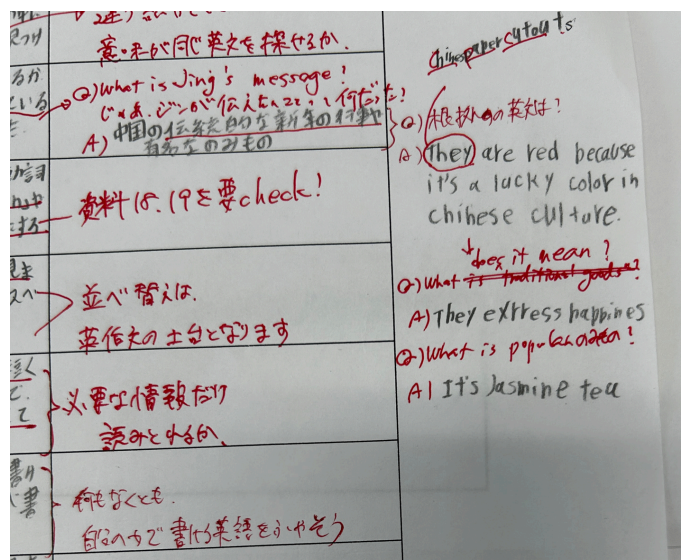 意・私が同じ英文を探せるか、
Q) What is Jing's message?
じゃあ、ジンが伝えたいことって何だった?
A) 中国の伝統的な新年の行事や
有名なのみもの
資料18、19を要check!
並べ替えは、
英作文の土台となります
必要な情報だけ
読みとれるか、
何もなくとも、
自分の力で書ける英語をふやそう
Chinese paper cutouts
Q) 根拠の英文は?
A) They are red because
it's a lucky color in
chinese culture.
does it mean?
Q) What is traditional goods?
A) They express happines
Q) What is popular tea?
A) It's Jasmine tea